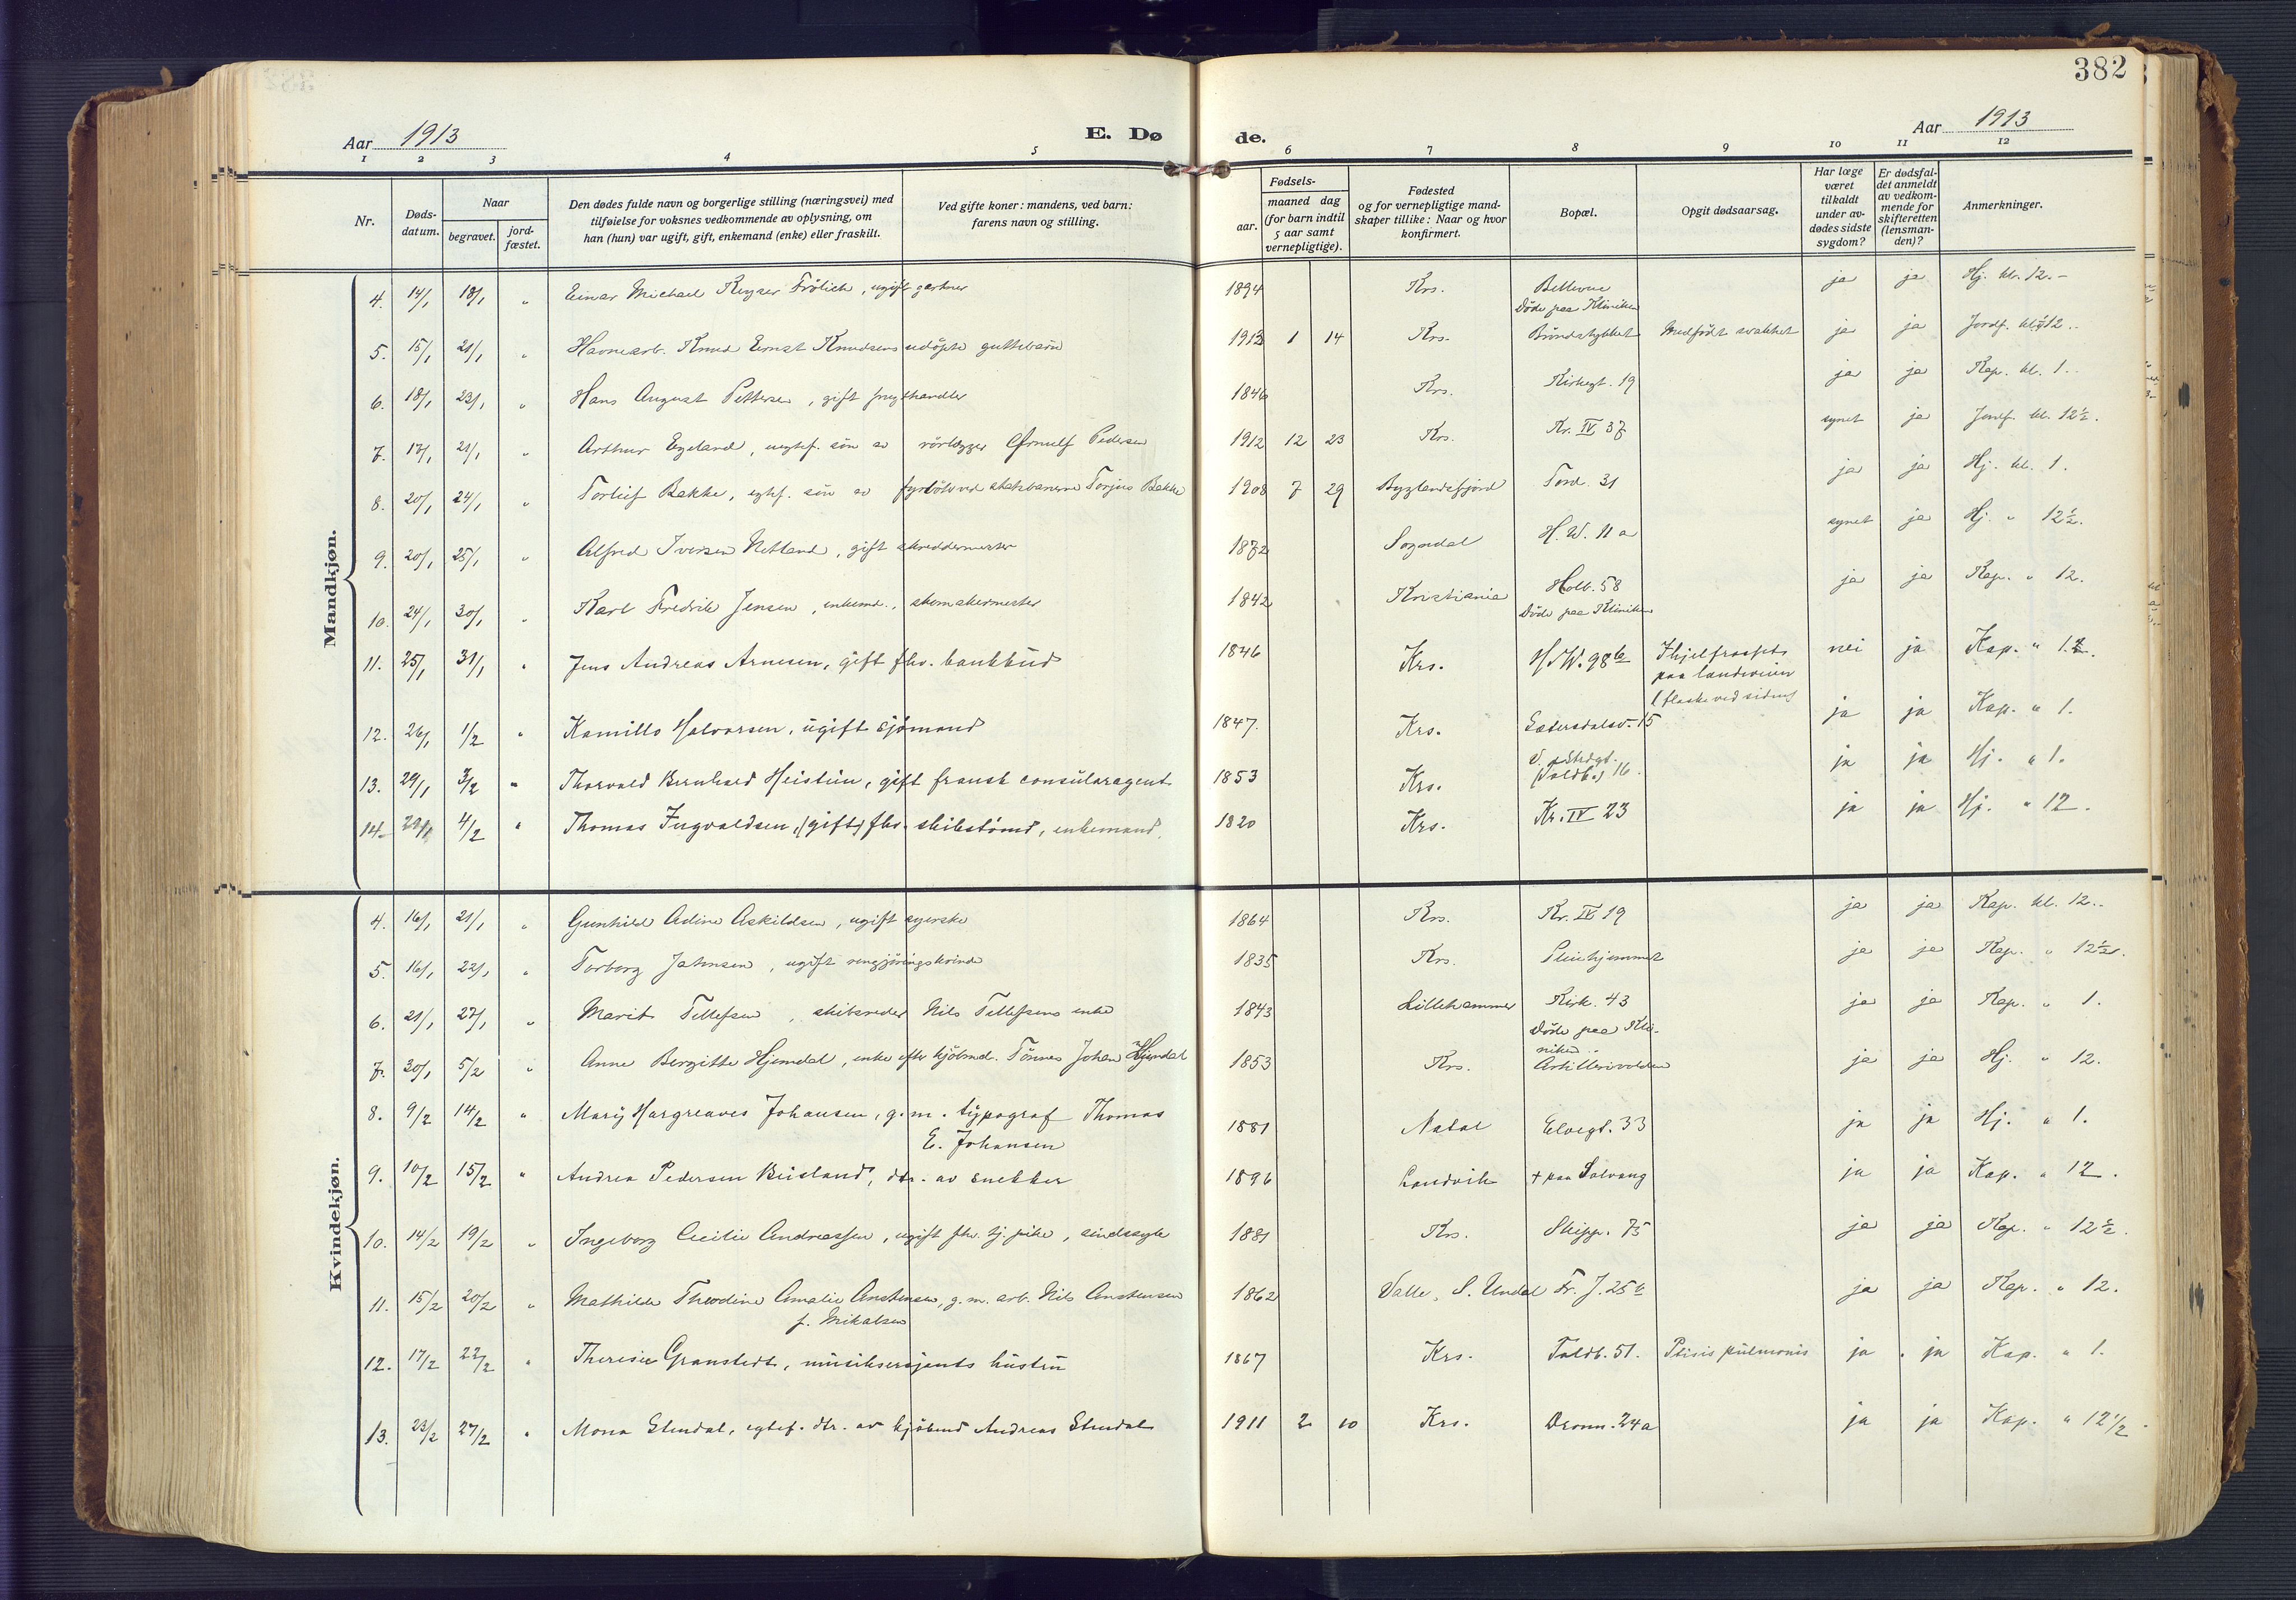 382
Aar 1913
E. Dø
de.
Aar 1913
1 2 3 4 5 6 7 8 9 10 11 12
Nr.
Døds-
datum.
Naar
begravet.
jord-
fæstet.
Den dødes fulde navn og borgerlige stilling (næringsvei) med
tilføielse for voksnes vedkommende av oplysning, om
han (hun) var ugift, gift, enkemand (enke) eller fraskilt.
Ved gifte koner: mandens, ved barn:
farens navn og stilling.
Fødsels-
aar.
maaned dag
(for barn indtil
5 aar samt
vernepligtige).
Fødested
og for vernepligtige mand-
skaper tillike: Naar og hvor
konfirmert.
Bopæl.
Opgit dødsaarsag.
Har læge
været
tilkaldt
under av-
dødes sidste
sygdom?
Er dødsfal-
det anmeldt
av vedkom-
mende for
skifteretten
(lensman-
den)?
Anmerkninger.
Mandkjøn.
4. 14/1 18/1 " Einar Michael Keyser Frölich, ugift gartner 1894 Krs. Bellevue ja ja Hj. kl. 12.-
Döde paa Kliniken
5. 15/1 21/1 " Havnearb. Knud Ernst Knudsens udöpte guttebarn 1913 1 14 Krs. Bündestykket Medfödt svakhet ja ja Jordf. kl. 12..
6. 18/1 23/1 " Hans August Pettersen, gift frugthandler 1846 Krs. Kirkegt. 19 ja ja Kap. kl. 1..
7. 17/1 21/1 " Arthur Egeland, uegtef. sön av rörlægger Ørnulf Pedersen 1912 12 23 Krs. Kr. IV 37 synet ja Jordf. kl. 12½.
8. 20/1 24/1 " Torleif Bakke, egtef. sön av fyrböter ved statsbanerne Torjus Bakke 1908 7 29 Byglandsfjord Tord. 31 ja ja Hj. kl. 1.
9. 20/1 25/1 " Alfred Iversen Netland, gift skreddermester 1872 Sogndal H.W. 11 a synet ja Hj. " 12½.
10. 24/1 30/1 " Karl Fredrik Jensen, enkemd., skomakermester 1842 Kristiania Holb. 58 ja ja Kap. " 12.
Döde paa Kliniken
11. 25/1 31/1 " Jens Andreas Arnesen, gift fhv. bankbud 1846 Krs. H.W. 98 b Ihjelfrosset nei ja Kap. " 12.
paa landeveien
(flaske ved siden)
12. 26/1 1/2 " Kamillo Halvorsen, ugift sjömand 1847. Krs. Sætersdalsv. 15 ja ja Kap. " 1.
13. 29/1 3/2 " Thorvald Bernhard Heistein, gift fransk consularagent 1853 Krs. V. Strdgt. (Toldb.) 16. ja ja Hj. " 1.
14. 29/1 4/2 " Thomas Ingvaldsen, (gift) fhv. skibstömd, enkemand. 1820 Krs. Kr. IV 23 ja ja Hj. " 12.
Kvindekjøn.
4. 16/1 21/1 " Gunhild Adine Askildsen, ugift syerske 1864 Krs. Kr. IV 19 ja ja Kap. kl. 12..
5. 16/1 22/1 " Torborg Jahnsen, ugift rengjöringskvinde 1835 Krs. Pleiehjemmet ja ja Kap. " 12½.
6. 21/1 27/1 " Marit Tellefsen, skibsreder Nils Tellefsens enke 1843 Lillehammer Kirk. 43 ja ja Kap. " 1.
Döde paa Kli-
niken..
7. 30/1 5/2 " Anne Bergitte Hjemdal, enke efter kjöbmd. Tönnes Johan Hjemdal 1853 Krs. Artillerivolden ja ja Hj. " 12.
8. 9/2 14/2 " Mary Hargreaves Johansen, g. m. typograf Thomas 1881 Natal Elvegt. 33 ja ja Hj. " 1.
E. Johansen
9. 10/2 15/2 " Andrea Pedersen Beisland, dtr. av snekker 1896 Landvik + paa Solvang ja ja Kap. " 12.
10. 14/2 19/2 " Ingeborg Cecilie Andreassen, ugift fhv. tj. pike, sindssyk 1881 Krs. Skipp. 75 ja ja Kap. " 12½.
11. 15/2 20/2 " Mathilde Theodine Amalie Anstensen, g. m. arb. Nils Anstensen 1862 Valle, S. Undal Fr. J. 25 b ja ja Kap. " 12.
f. Mikalsen
12. 17/2 22/2 " Theresie Granstedt, musiksersjants hustru 1867 Krs. Toldb. 51. Ptisis pulmonis ja ja Kap. " 1.
13. 23/2 27/2 " Mona Stendal, egtef. dtr. av kjöbmd Andreas Stendal 1911 2 10 Krs. Dronn. 24a ja ja Kap. " 12 1/2